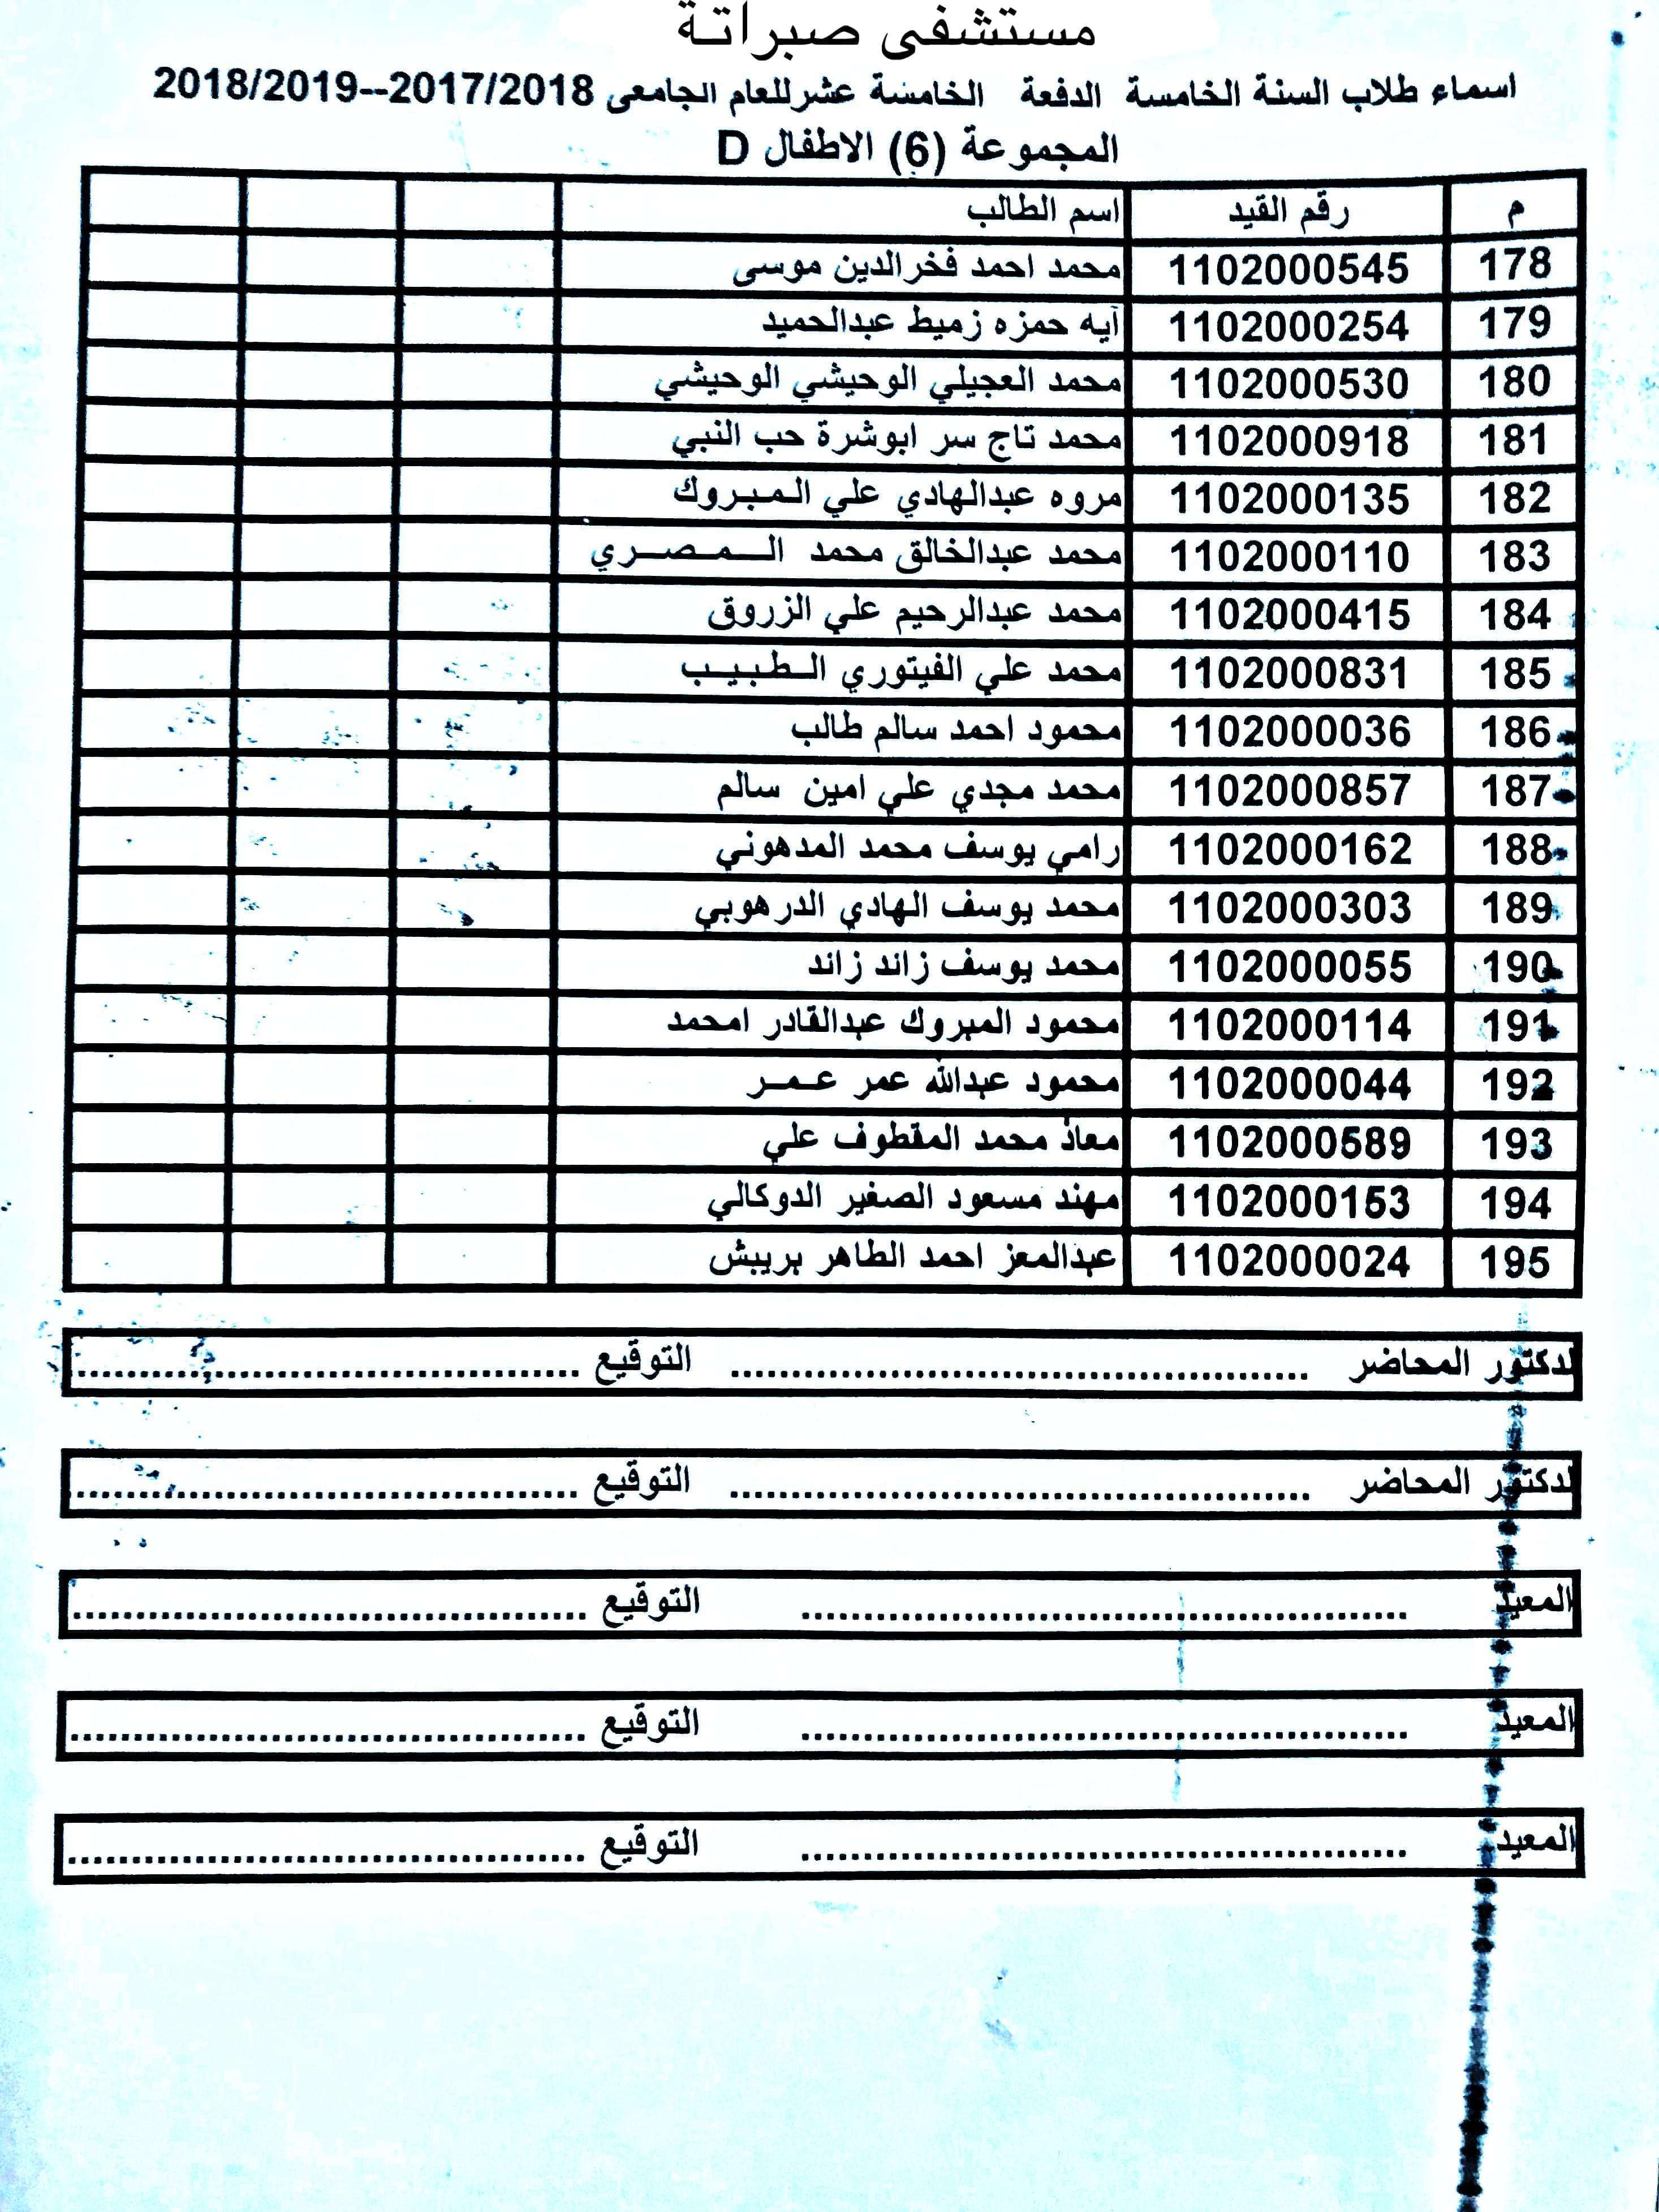 مستشفى صبراتة
اسماء طلاب السنة الخامسة الدفعة الخامسة عشرللعام الجامعى 2017/2018--2018/2019
المجموعة (6) الاطفال D
م رقم القيد اسم الطالب
178 1102000545 محمد احمد فخرالدين موسى
179 1102000254 آيه حمزه زميط عبدالحميد
180 1102000530 محمد العجيلي الوحيشي الوحيشي
181 1102000918 محمد تاج سر ابوشرة حب النبي
182 1102000135 مروه عبدالهادي علي المبروك
183 1102000110 محمد عبدالخالق محمد الـــمــصـــري
184 1102000415 محمد عبدالرحيم علي الزروق
185 1102000831 محمد علي الفيتوري الـطـبيـب
186 1102000036 محمود احمد سالم طالب
187 1102000857 محمد مجدي علي امين سالم
188 1102000162 رامي يوسف محمد المدهوني
189 1102000303 محمد يوسف الهادي الدرهوبي
190 1102000055 محمد يوسف زائد زائد
191 1102000114 محمود المبروك عبدالقادر امحمد
192 1102000044 محمود عبدالله عمر عـمـر
193 1102000589 معاذ محمد المقطوف علي
194 1102000153 مهند مسعود الصغير الدوكالي
195 1102000024 عبدالمعز احمد الطاهر بريبش
لدكتور المحاضر ............................................... التوقيع .........................................
لدكتور المحاضر ............................................... التوقيع .........................................
المعيد ................................................. التوقيع .........................................
المعيد ................................................. التوقيع .........................................
المعيد ................................................. التوقيع .........................................